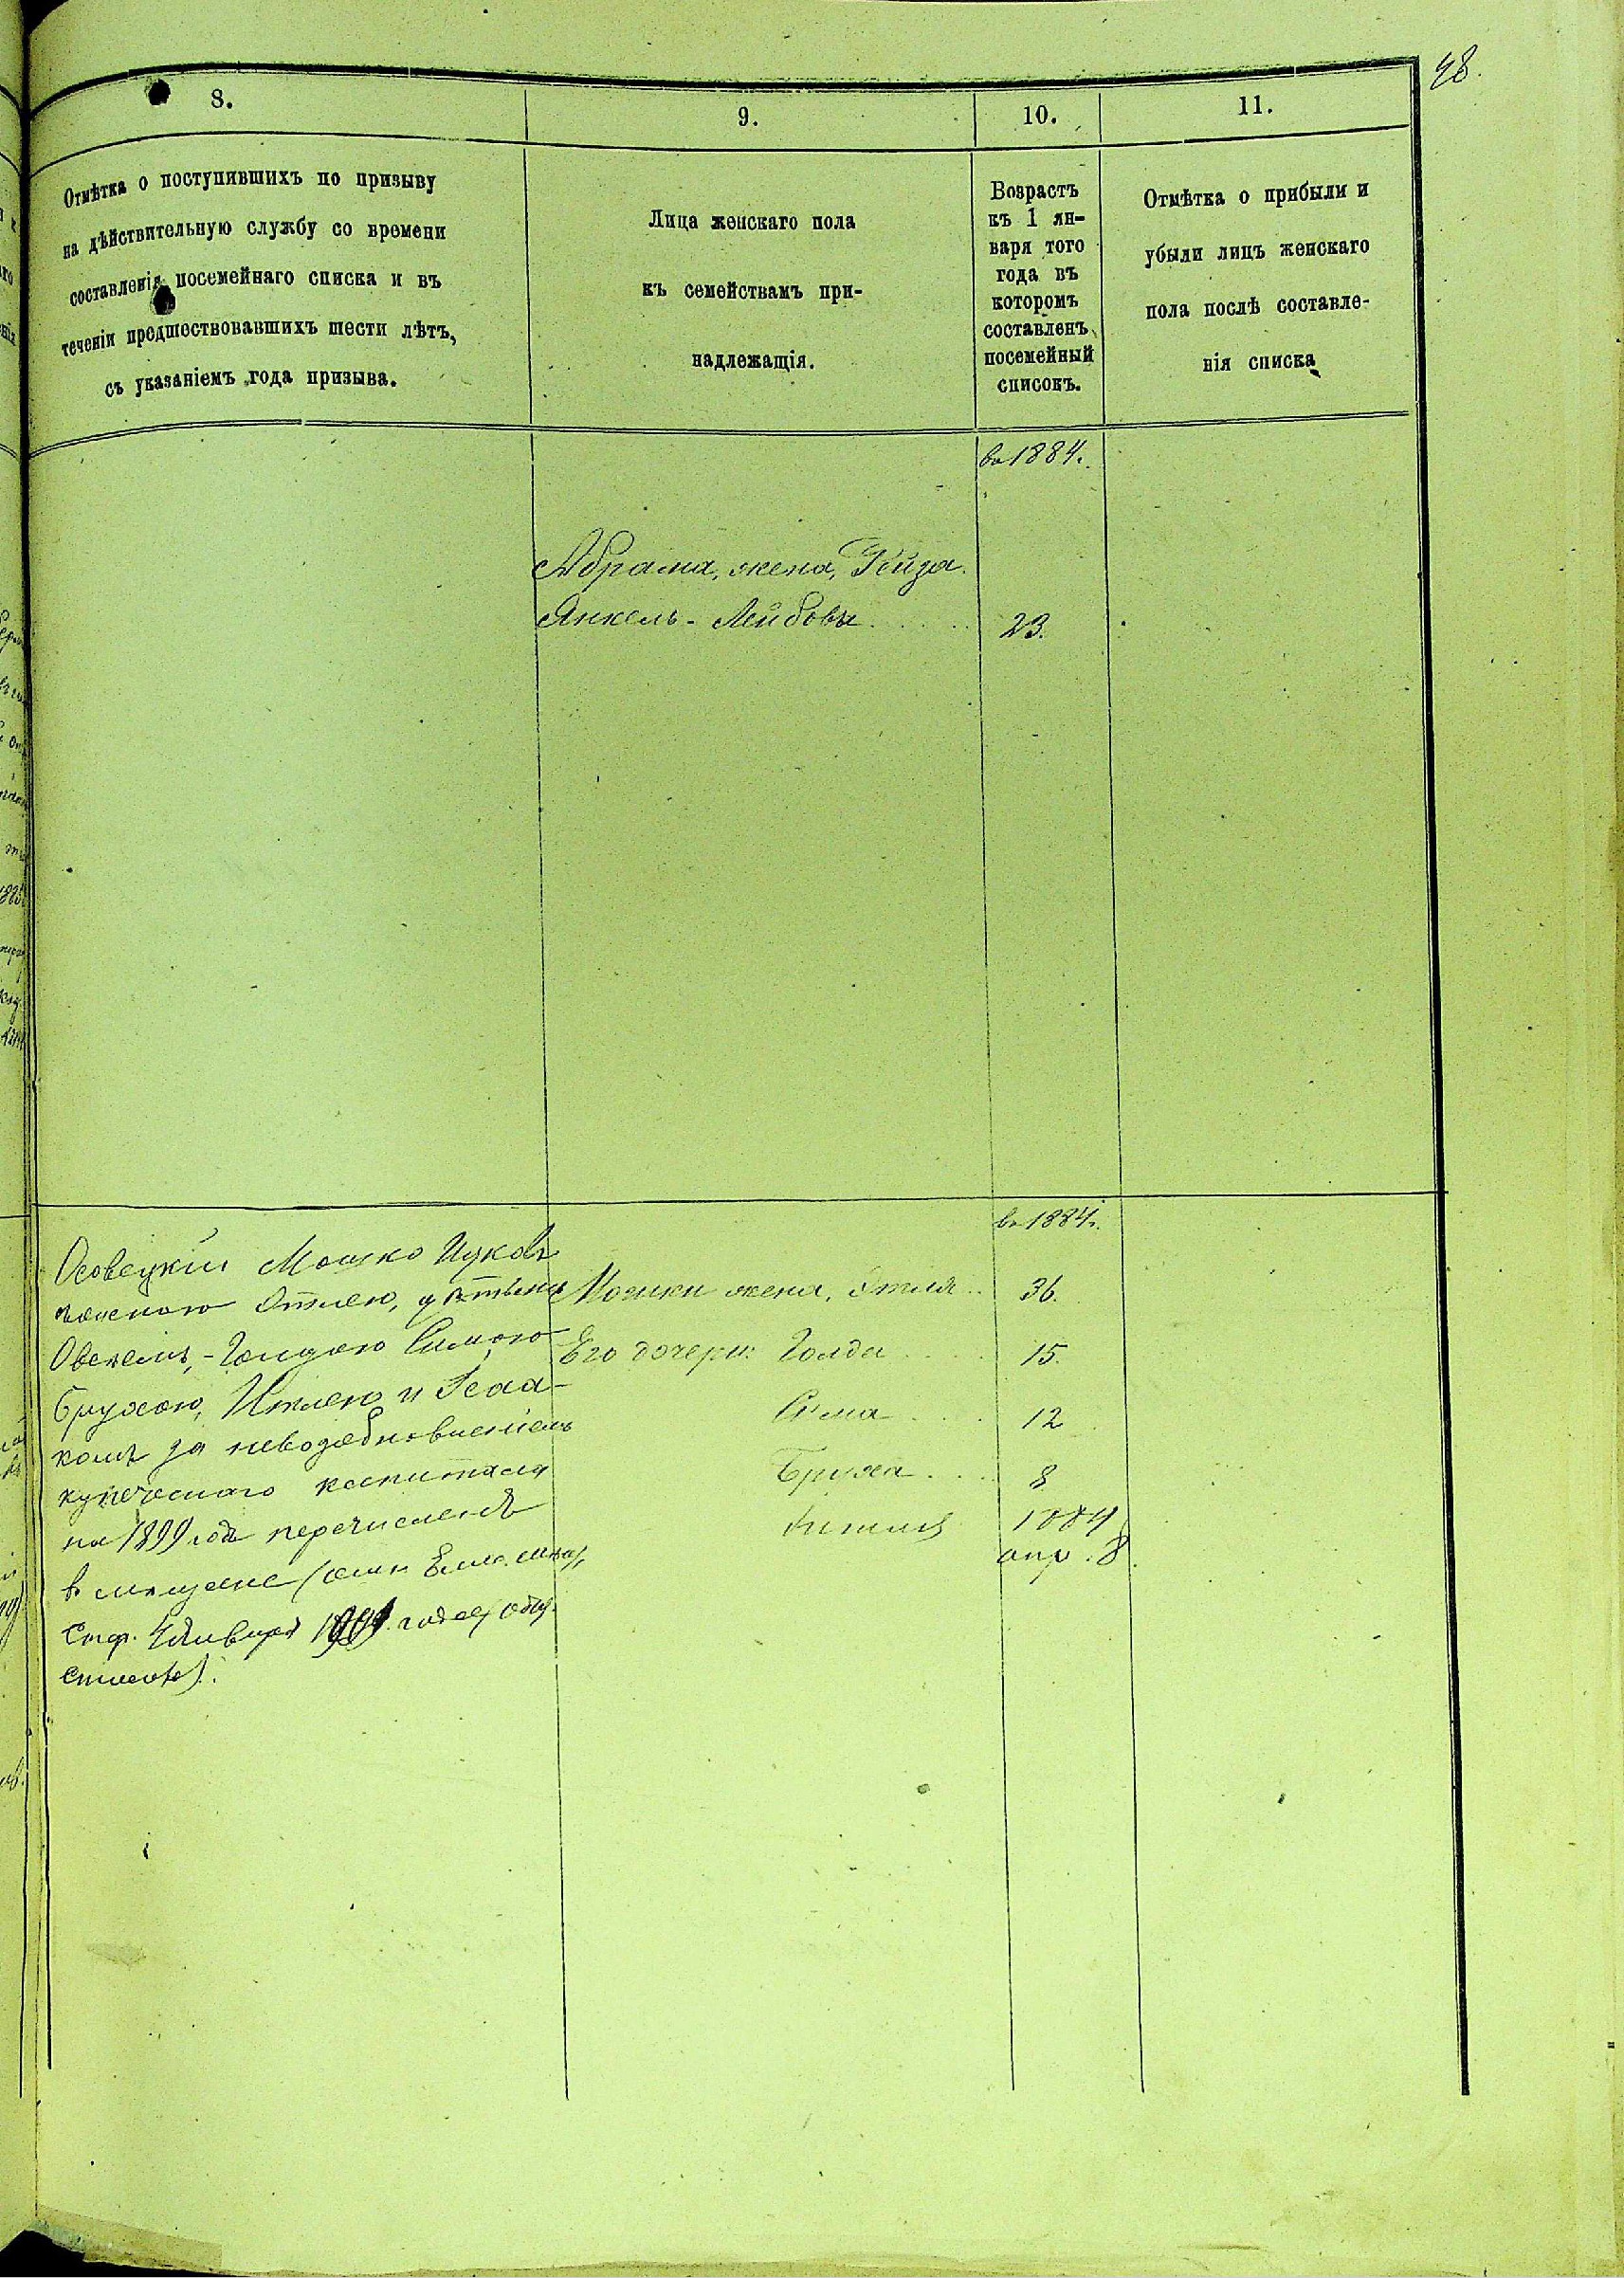 48.
8.
9.
10.
11.
Отмѣтка о поступившихъ по призыву
на дѣйствительную службу со времени
составленія посемейнаго списка и въ
теченіи предшествовавшихъ шести лѣтъ,
съ указаніемъ года призыва.
Лица женскаго пола
къ семействамъ при-
надлежащія.
Возрастъ
къ 1 ян-
варя того
года въ
которомъ
составленъ
посемейный
списокъ.
Отмѣтка о прибыли и
убыли лицъ женскаго
пола послѣ составле-
нія списка
въ 1884 г.
Абрама, жена, Рейза
Янкель-Лейбова 23.
въ 1884 г.
Осовецкій Мошко Ицковъ
женою Этлею, дѣтьми
Голдою Симою
Брухою, Итлею и
комъ за невозобновленіемъ
купеческаго капитала
на 1899 годъ перечисленъ
в мещане
1901 года
списокъ).
Мошки жена, Этля 36.
Его дочери: Голда 15.
Сима 12
Бруха 8
1884
апр. 8.